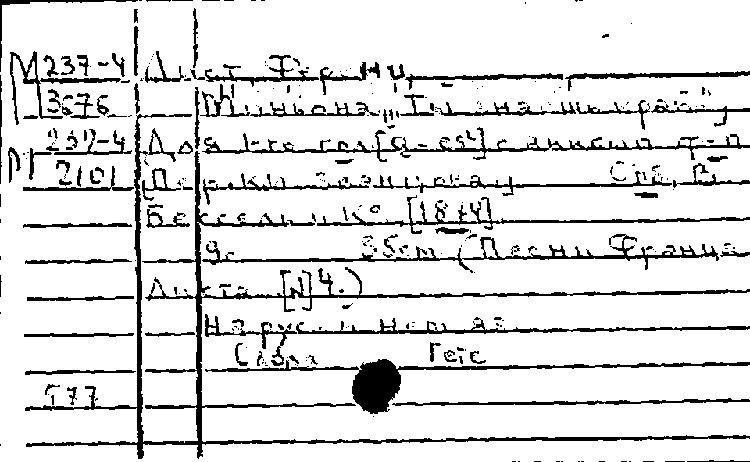 М 237-4 Лист, Ференц.
3676 Миньона „Ты знаешь край“,
М 237-4 Для 1-го гол. [g-es²] с аккомп. ф-п
2101 [Пер. К. Званцова]. Спб., В.
Бессель и К° [1874].
9с. 35cm (Песни Франца
Листа [N] 4.)
На рус. и нем. яз.
Слова Гете
577